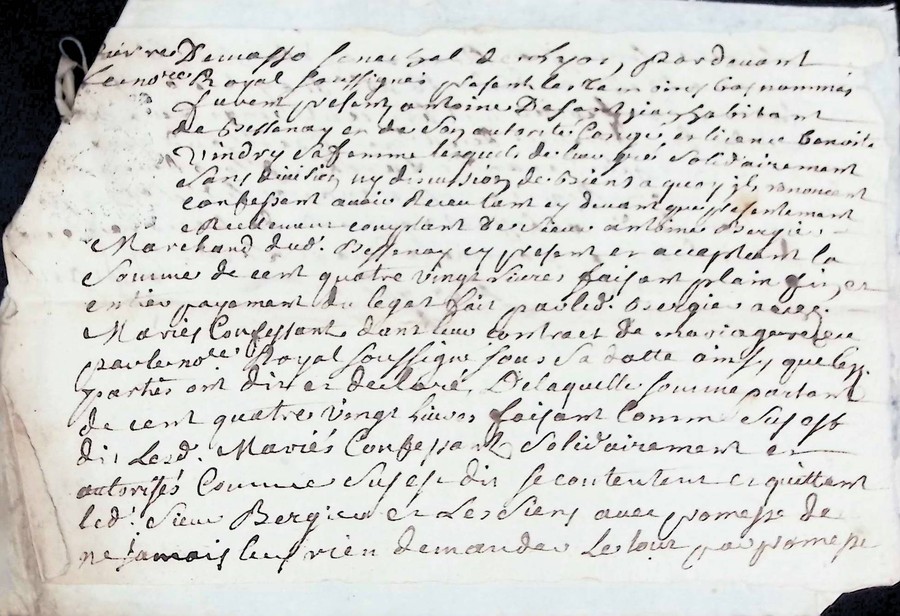 Demasso senechal de Lyon, pardevant
Le no.re Royal soussigné present les temoins bas nommés
furent presents antoine habitant
de Bessenay et de son autorité Congé et licence Benoite
Vindry sa femme lesquels de leur gré solidairement
sans division ny discussion de biens a quoy ils renoncent
confessent avoir Receu tant cy devant que presentement
et Reellement comptant de sieur antoine Bergier
Marchand dud. Bessenay cy present et acceptant la
somme de cent quatre vingt livres faisant plain fin, et
entier payement du legat fait par led. Bergier auxd.
Mariés Confessant dans leur contract de mariage receu
par le no.re Royal soussigné sous sa datte ainsy que les
parties ont dit et declaré, De laquelle somme partant
de cent quatre vingt livres faisant Comme sus est
dit Lesd. Mariés Confessant solidairement et
autorisés Comme sus est dit se contentent et quittent
led. sieur Bergier et Les siens avec promesse de
ne jamais leur rien demander Le tout par promesse